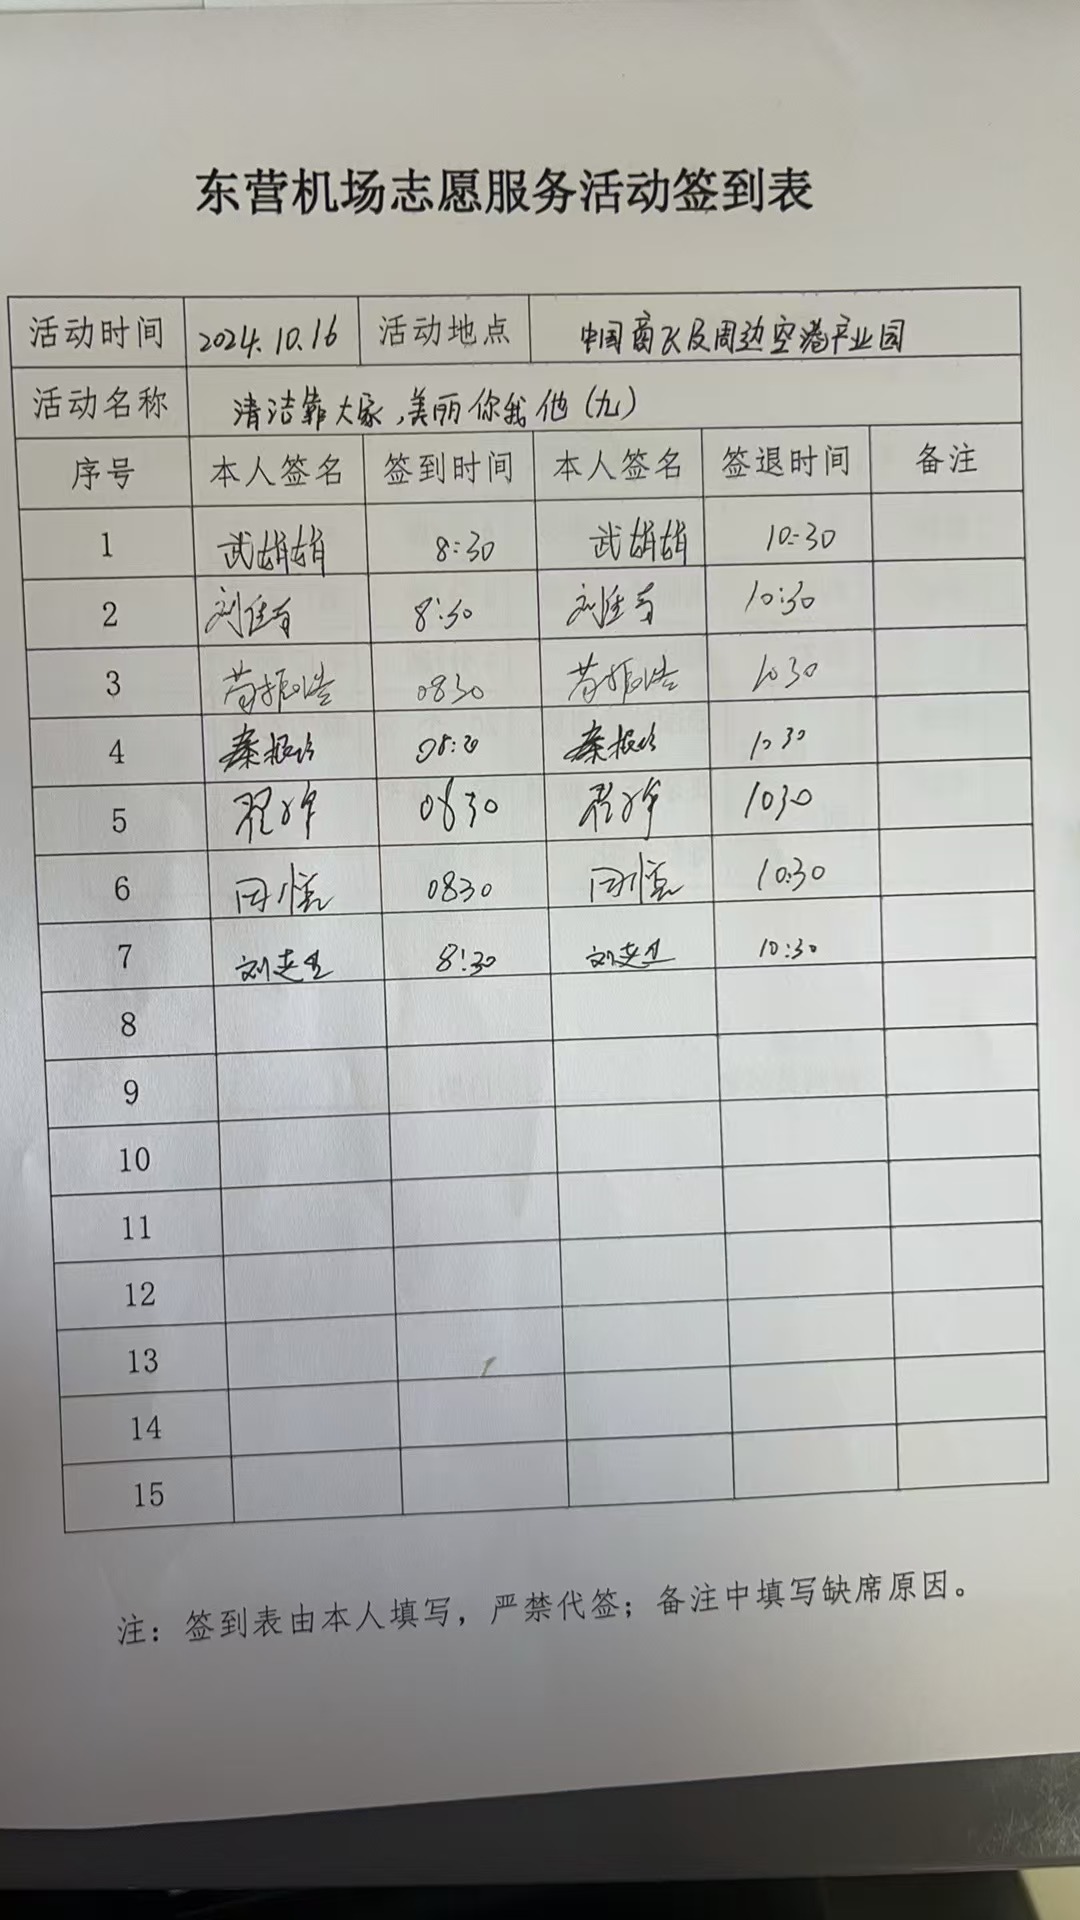 东营机场志愿服务活动签到表
活动时间 2024.10.16 活动地点 中国商飞及周边空港产业园
活动名称 清洁靠大家,美丽你我他(九)
序号 本人签名 签到时间 本人签名 签退时间 备注
1 武娟娟 8:30 武娟娟 10:30
2 8:30 10:30
3 0830 1030
4 1030
5 0830 1030
6 0830 10:30
7 8:30 10:30
8
9
10
11
12
13
14
15
注：签到表由本人填写，严禁代签；备注中填写缺席原因。